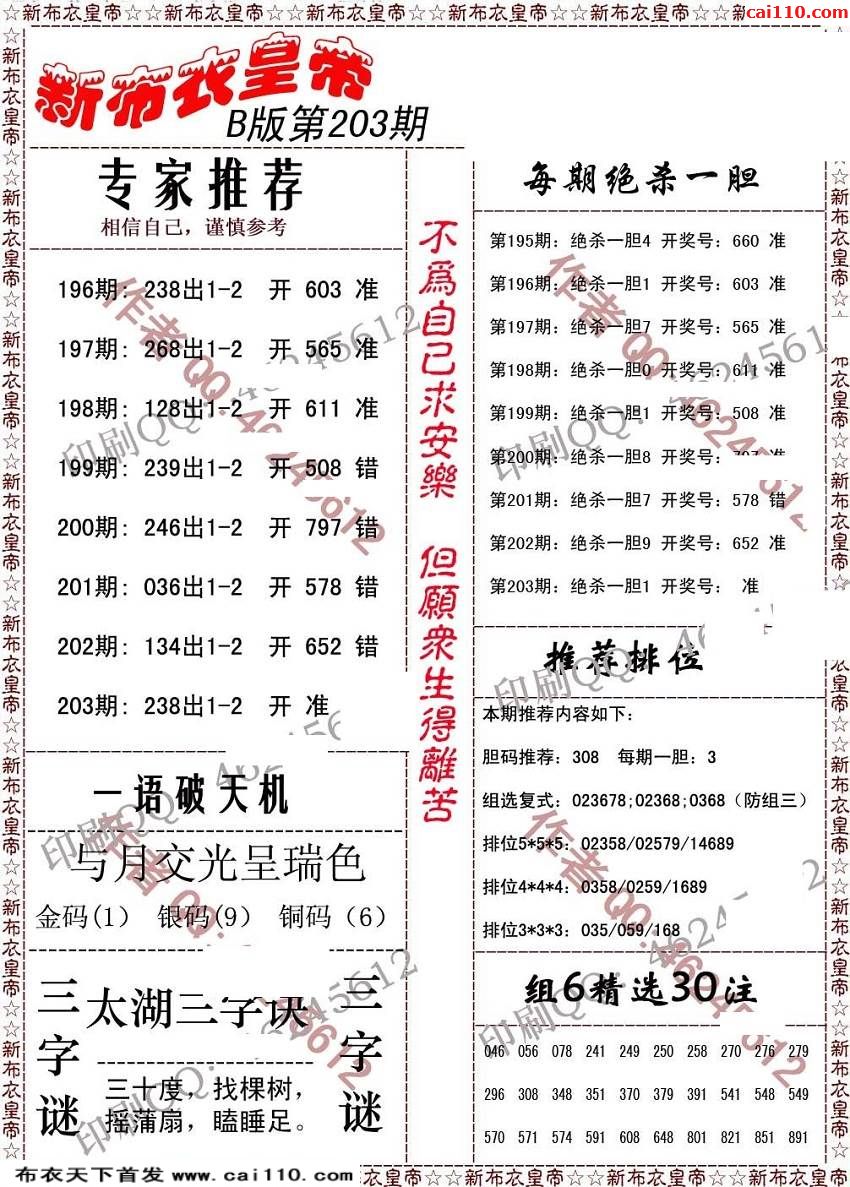 ☆新布衣皇帝☆☆新布衣皇帝☆☆新布衣皇帝☆☆新布衣皇帝☆☆新布衣皇帝☆☆
cai110.com
新布衣皇帝
B版第203期
专家推荐
相信自己，谨慎参考
196期: 238出1-2 开 603 准
197期: 268出1-2 开 565 准
198期: 128出1-2 开 611 准
199期: 239出1-2 开 508 错
200期: 246出1-2 开 797 错
201期: 036出1-2 开 578 错
202期: 134出1-2 开 652 错
203期: 238出1-2 开 准
一语破天机
与月交光呈瑞色
金码(1) 银码(9) 铜码（6）
三字谜
太湖三字诀
三十度，找棵树，
摇蒲扇，瞌睡足。
三字谜
不為自己求安樂 但願眾生得離苦
每期绝杀一胆
第195期: 绝杀一胆4 开奖号: 660 准
第196期: 绝杀一胆1 开奖号: 603 准
第197期: 绝杀一胆7 开奖号: 565 准
第198期: 绝杀一胆0 开奖号: 611 准
第199期: 绝杀一胆1 开奖号: 508 准
第200期: 绝杀一胆8 开奖号: 准
第201期: 绝杀一胆7 开奖号: 578 错
第202期: 绝杀一胆9 开奖号: 652 准
第203期: 绝杀一胆1 开奖号: 准
推荐排位
本期推荐内容如下:
胆码推荐: 308 每期一胆: 3
组选复式: 023678;02368;0368（防组三）
排位5*5*5: 02358/02579/14689
排位4*4*4: 0358/0259/1689
排位3*3*3: 035/059/168
组6精选30注
046 056 078 241 249 250 258 270 276 279
296 308 348 351 370 379 391 541 548 549
570 571 574 591 608 648 801 821 851 891
作者QQ:46245612
印刷QQ:46245612
布衣天下首发 www.cai110.com